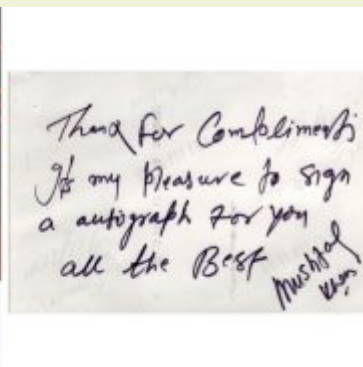 Thank for Compliments
It's my pleasure to sign
a autograph for you
all the Best
Mushtaq
Khan